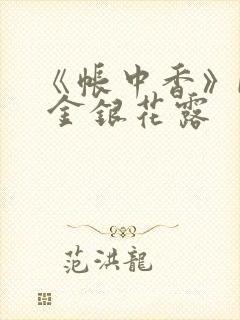 《帳中香》
金銀花露
范洪龍